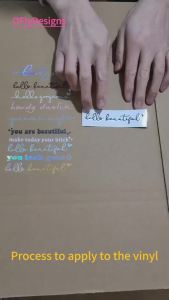 OFhDesigns
hello beautiful
howdy darlin
hello beautiful
you are beautiful
make today your bitch
hello beautiful
you look good
hello beautiful
Process to apply to the vinyl